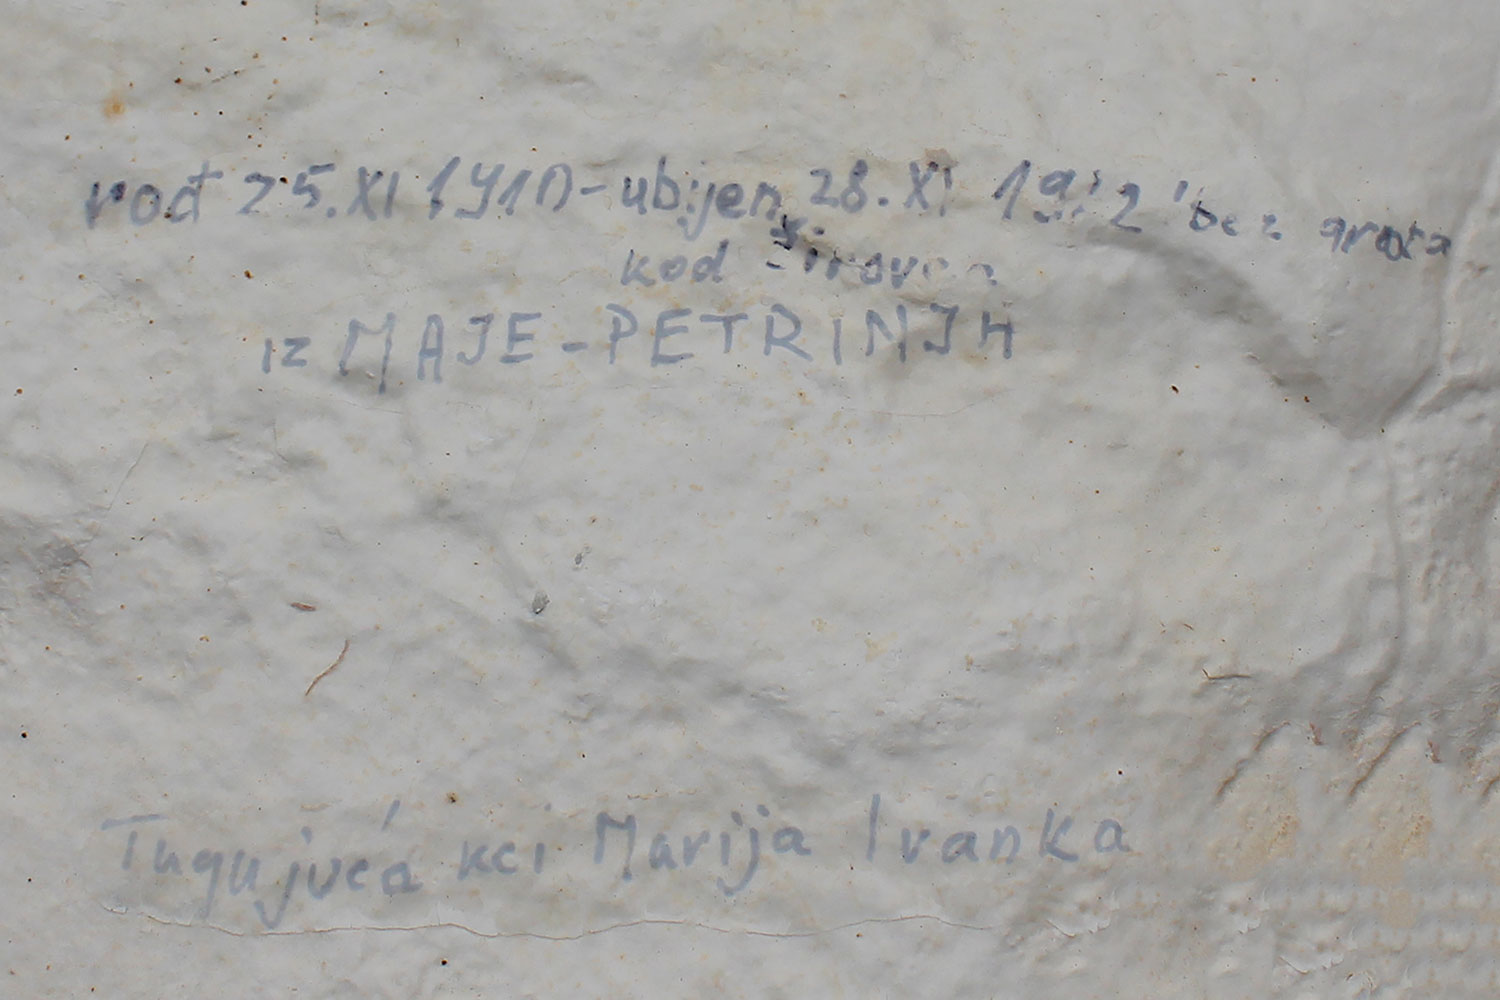 rođ 25.XI 1910-ubijen 28.XI 19 2 bez groba
kod Žirovca
iz MAJE-PETRINJA
Tugujuća kci Marija Ivanka